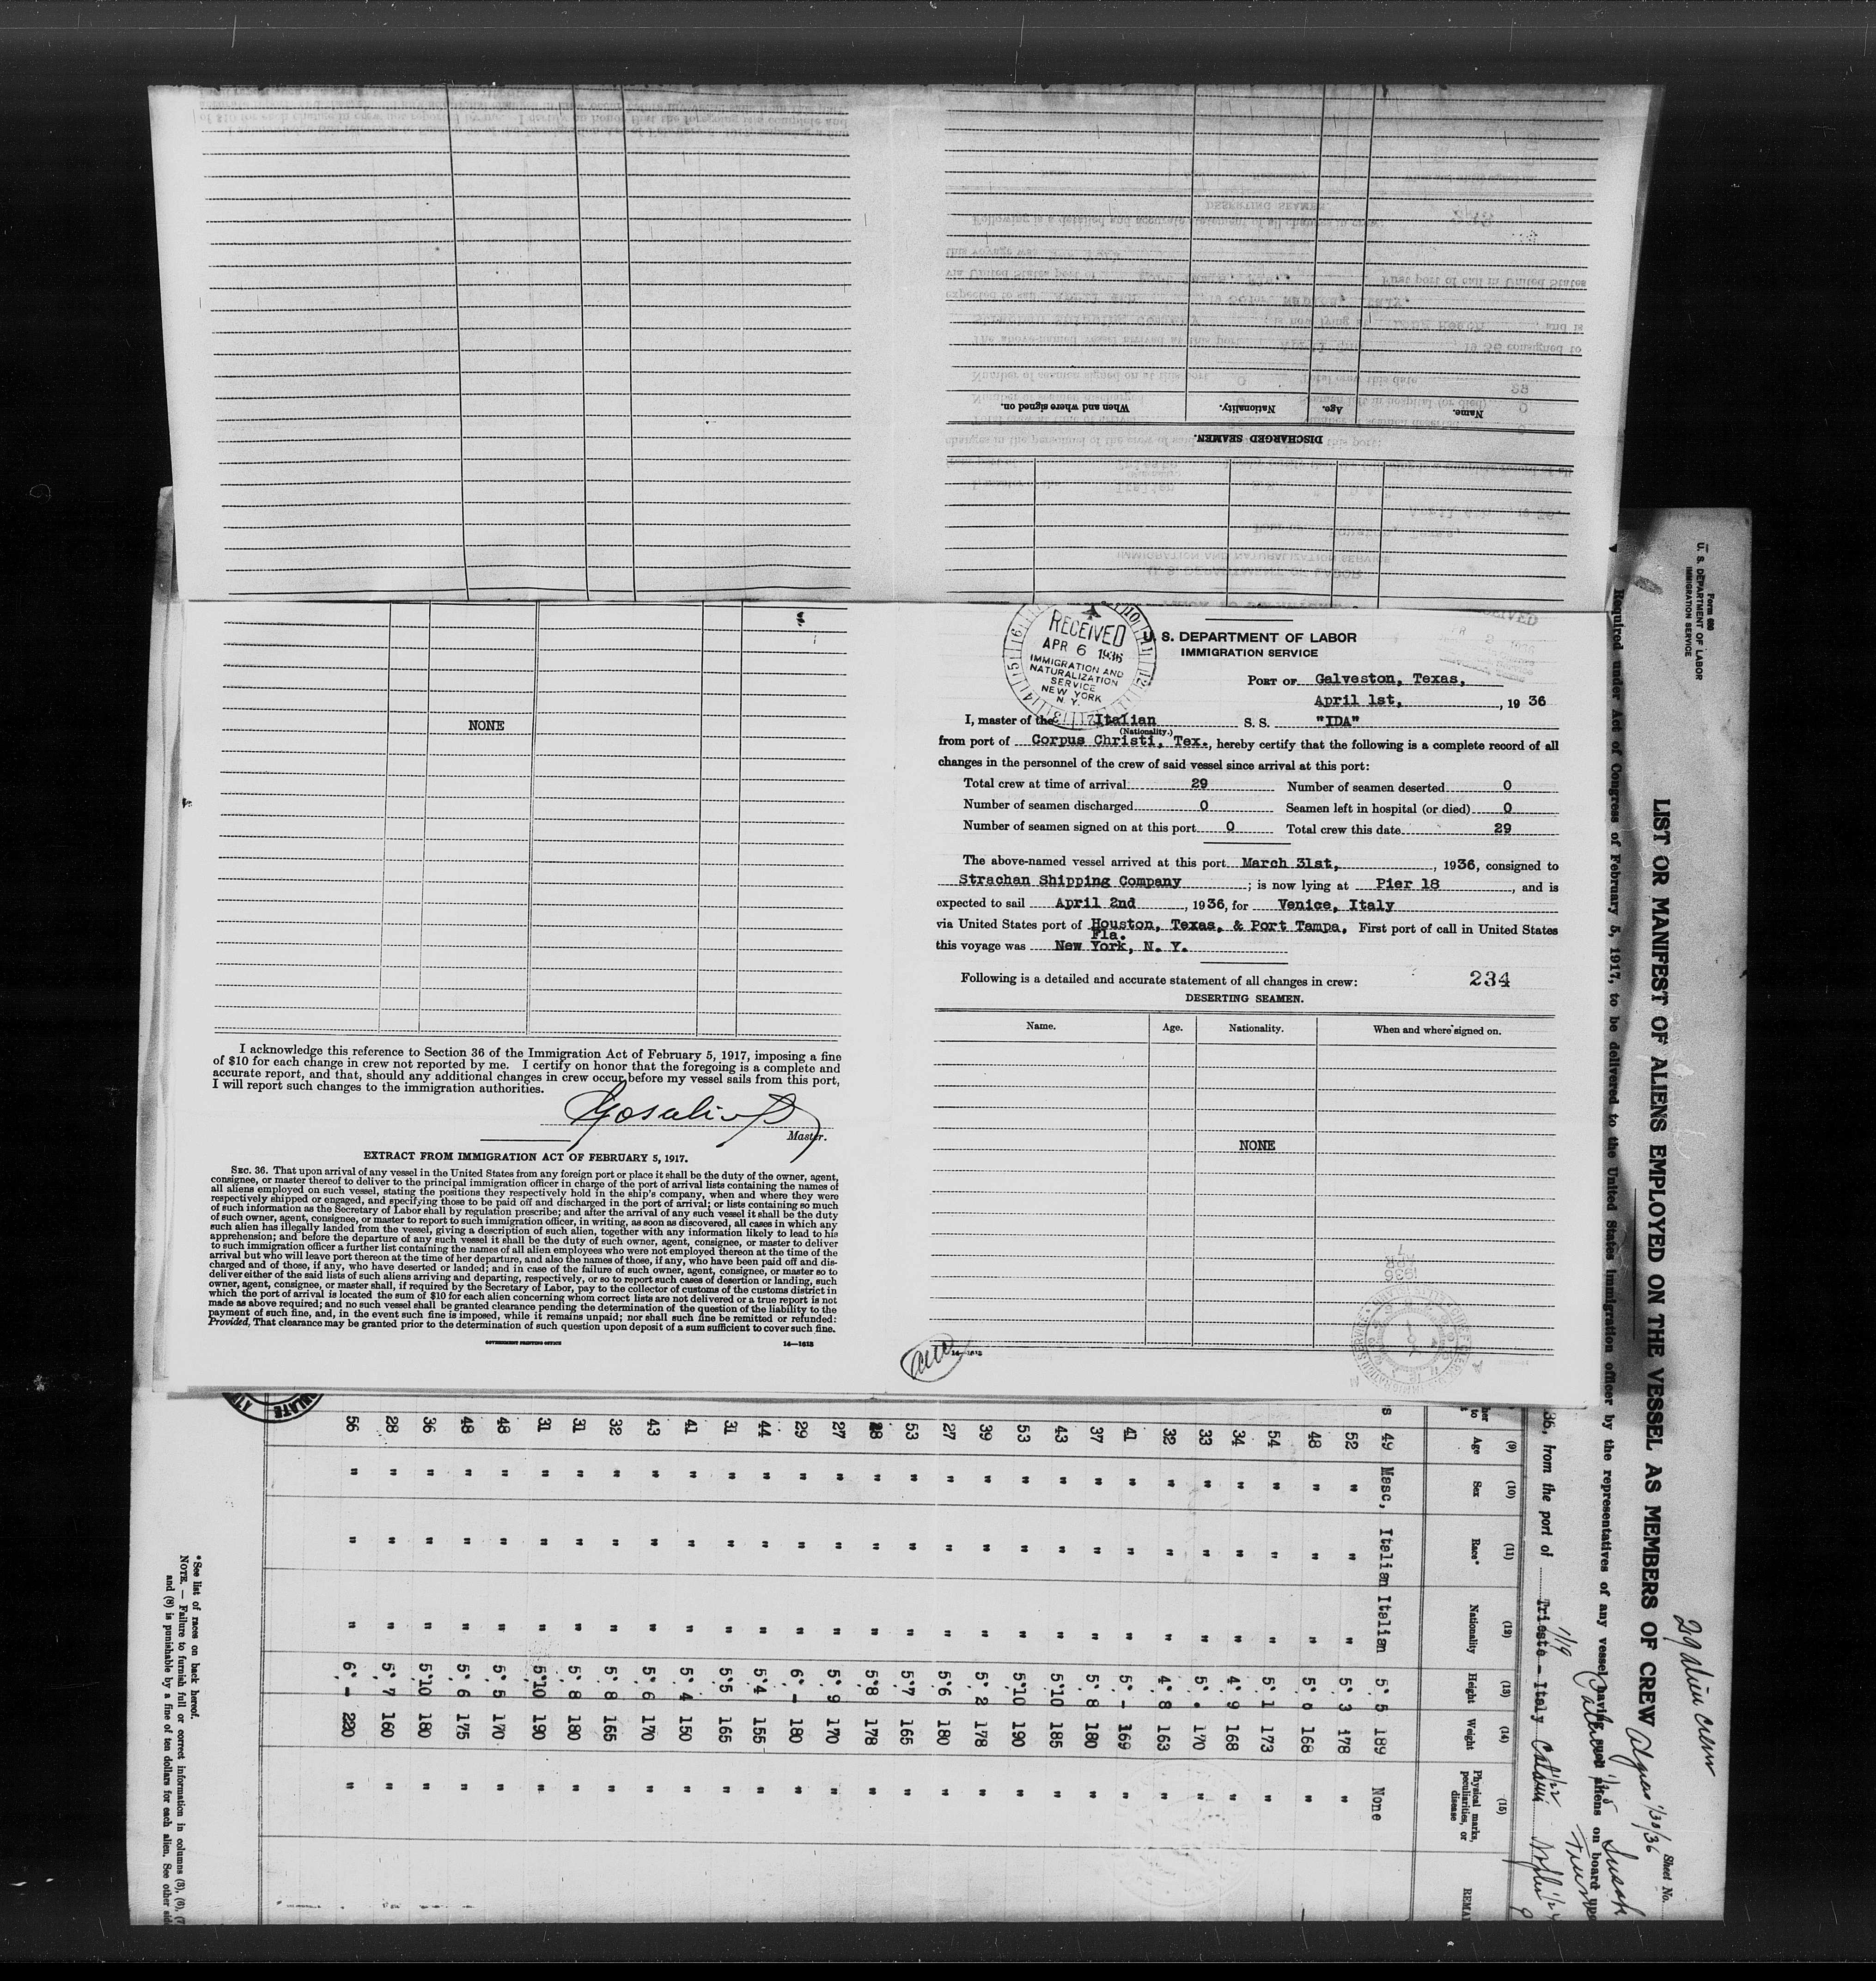 DISCHARGED SEAMEN.
Name.
Age.
Nationality.
When and where signed on.
NONE
I acknowledge this reference to Section 36 of the Immigration Act of February 5, 1917, imposing a fine
of $10 for each change in crew not reported by me. I certify on honor that the foregoing is a complete and
accurate report, and that, should any additional changes in crew occur before my vessel sails from this port,
I will report such changes to the immigration authorities.
Master.
EXTRACT FROM IMMIGRATION ACT OF FEBRUARY 5, 1917.
SEC. 36. That upon arrival of any vessel in the United States from any foreign port or place it shall be the duty of the owner, agent,
consignee, or master thereof to deliver to the principal immigration officer in charge of the port of arrival lists containing the names of
all aliens employed on such vessel, stating the positions they respectively hold in the ship's company, when and where they were
respectively shipped or engaged, and specifying those to be paid off and discharged in the port of arrival; or lists containing so much
of such information as the Secretary of Labor shall by regulation prescribe; and after the arrival of any such vessel it shall be the duty
of such owner, agent, consignee, or master to report to such immigration officer, in writing, as soon as discovered, all cases in which any
such alien has illegally landed from the vessel, giving a description of such alien, together with any information likely to lead to his
apprehension; and before the departure of any such vessel it shall be the duty of such owner, agent, consignee, or master to deliver
to such immigration officer a further list containing the names of all alien employees who were not employed thereon at the time of the
arrival but who will leave port thereon at the time of her departure, and also the names of those, if any, who have been paid off and dis-
charged and of those, if any, who have deserted or landed; and in case of the failure of such owner, agent, consignee, or master so to
deliver either of the said lists of such aliens arriving and departing, respectively, or so to report such cases of desertion or landing, such
owner, agent, consignee, or master shall, if required by the Secretary of Labor, pay to the collector of customs of the customs district in
which the port of arrival is located the sum of $10 for each alien concerning whom correct lists are not delivered or a true report is not
made as above required; and no such vessel shall be granted clearance pending the determination of the question of the liability to the
payment of such fine, and, in the event such fine is imposed, while it remains unpaid; nor shall such fine be remitted or refunded:
Provided, That clearance may be granted prior to the determination of such question upon deposit of a sum sufficient to cover such fine.
GOVERNMENT PRINTING OFFICE 14—1618
RECEIVED
APR 6 1936
IMMIGRATION AND
NATURALIZATION
SERVICE
NEW YORK
N. Y.
U. S. DEPARTMENT OF LABOR
IMMIGRATION SERVICE
PORT OF Galveston, Texas,
April 1st, , 19 36
I, master of the Italian S. S. "IDA"
(Nationality.)
from port of Corpus Christi, Tex., hereby certify that the following is a complete record of all
changes in the personnel of the crew of said vessel since arrival at this port:
Total crew at time of arrival 29 Number of seamen deserted 0
Number of seamen discharged 0 Seamen left in hospital (or died) 0
Number of seamen signed on at this port 0 Total crew this date 29
The above-named vessel arrived at this port March 31st, , 1936, consigned to
Strachan Shipping Company ; is now lying at Pier 18 , and is
expected to sail April 2nd , 1936, for Venice, Italy
via United States port of Houston, Texas, & Port Tampa, First port of call in United States
Fla.
this voyage was New York, N. Y.
Following is a detailed and accurate statement of all changes in crew: 234
DESERTING SEAMEN.
Name. Age. Nationality. When and where signed on.
NONE
14—1618
Form 680
U. S. DEPARTMENT OF LABOR
IMMIGRATION SERVICE
29 alien crew
Sheet No.
LIST OR MANIFEST OF ALIENS EMPLOYED ON THE VESSEL AS MEMBERS OF CREW
Required under Act of Congress of February 5, 1917, to be delivered to the United States immigration officer by the representatives of any vessel having such aliens on board upo
36, from the port of Trieste - Italy
(9) (10) (11) (12) (13) (14) (15)
Age Sex Race* Nationality Height Weight Physical marks, peculiarities, or disease REMA
49 Masc, Italian Italian 5' 5 189 None
52 " " " 5' 3 178 "
48 " " " 5' 0 168 "
54 " " " 5' 1 173 "
34 " " " 4' 9 168 "
33 " " " 5' 170 "
32 " " " 4' 8 163 "
41 " " " 5' - 169 "
37 " " " 5' 8 180 "
43 " " " 5'10 185 "
53 " " " 5'10 190 "
39 " " " 5' 2 178 "
27 " " " 5'6 180 "
53 " " " 5'7 165 "
28 " " " 5'8 178 "
27 " " " 5' 9 170 "
29 " " " 6' - 180 "
44 " " " 5'4 155 "
31 " " " 5'5 165 "
41 " " " 5' 4 150 "
43 " " " 5' 6 170 "
32 " " " 5' 8 165 "
31 " " " 5' 8 180 "
31 " " " 5'10 190 "
48 " " " 5' 5 170 "
48 " " " 5' 6 175 "
36 " " " 5'10 180 "
28 " " " 5' 7 160 "
56 " " " 6' - 220 "
*See list of races on back hereof.
NOTE. — Failure to furnish full or correct information in columns (3), (6), (7
and (8) is punishable by a fine of ten dollars for each alien. See other sid